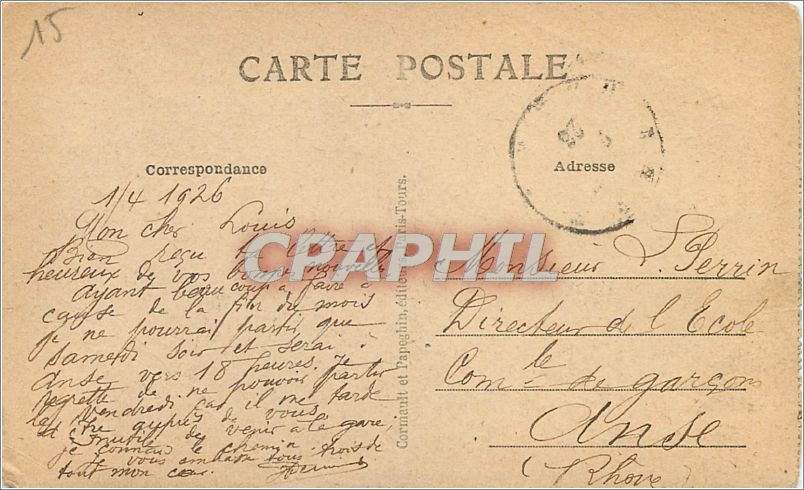 15
CARTE POSTALE
Correspondance
Adresse
1/4 1926
Mon cher Louis
Bien reçu ta lettre et
heureux de vos bonnes nouvelles
Ayant beaucoup à faire à
cause de la fin du mois
je ne pourrai partir que
samedi soir et serai à
Anse vers 18 heures. Je
regrette de ne pouvoir partir
le vendredi car il me tarde
d'être auprès de vous.
Inutile de venir à la gare,
je connais le chemin.
Je vous embrasse tous trois de
tout mon cœur.
Cormault et Papeghin, éditeurs, Paris-Tours.
CPAPHIL
Monsieur L. Perrin
Directeur de l'Ecole
Com^le de garçons
Anse
(Rhône